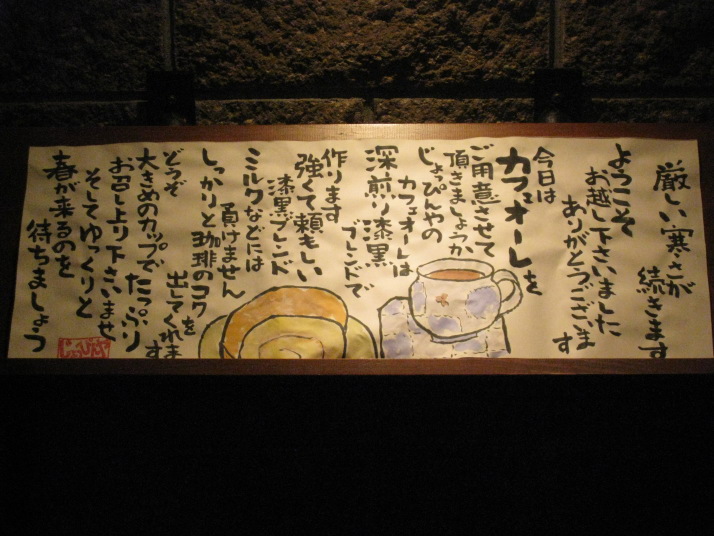 厳しい寒さが
続きます
ようこそ
お越し下さいました
ありがとうございます
今日は
カフェオーレを
ご用意させて
頂きましょうか
じょっぴんやの
カフェオーレは
深煎り漆黒
ブレンドで
作ります
強くて頼もしい
漆黒ブレンド
ミルクなどには
負けません
しっかりと珈琲のコクを
出してくれます
どうぞ
大きめのカップでたっぷり
お召し上り下さいませ
そしてゆっくりと
春が来るのを
待ちましょう